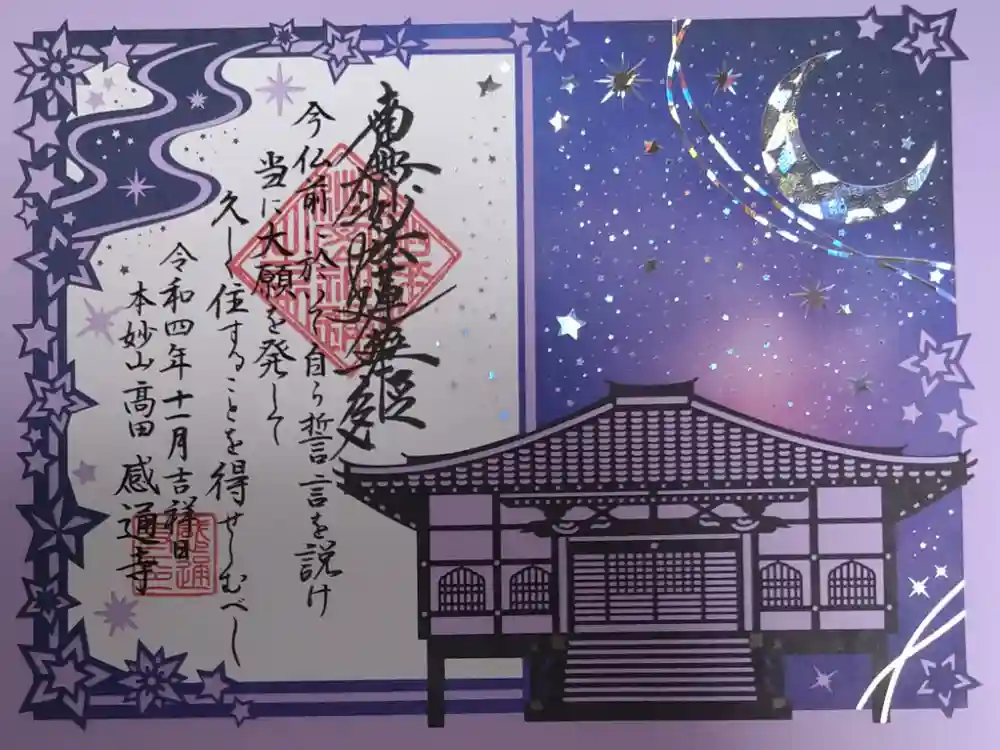 南無妙法蓮華経
今仏前に於いて自ら誓言を説け
当に大願を発して
久しく住することを得せしむべし
令和四年十一月吉祥日
本妙山高田 感通寺